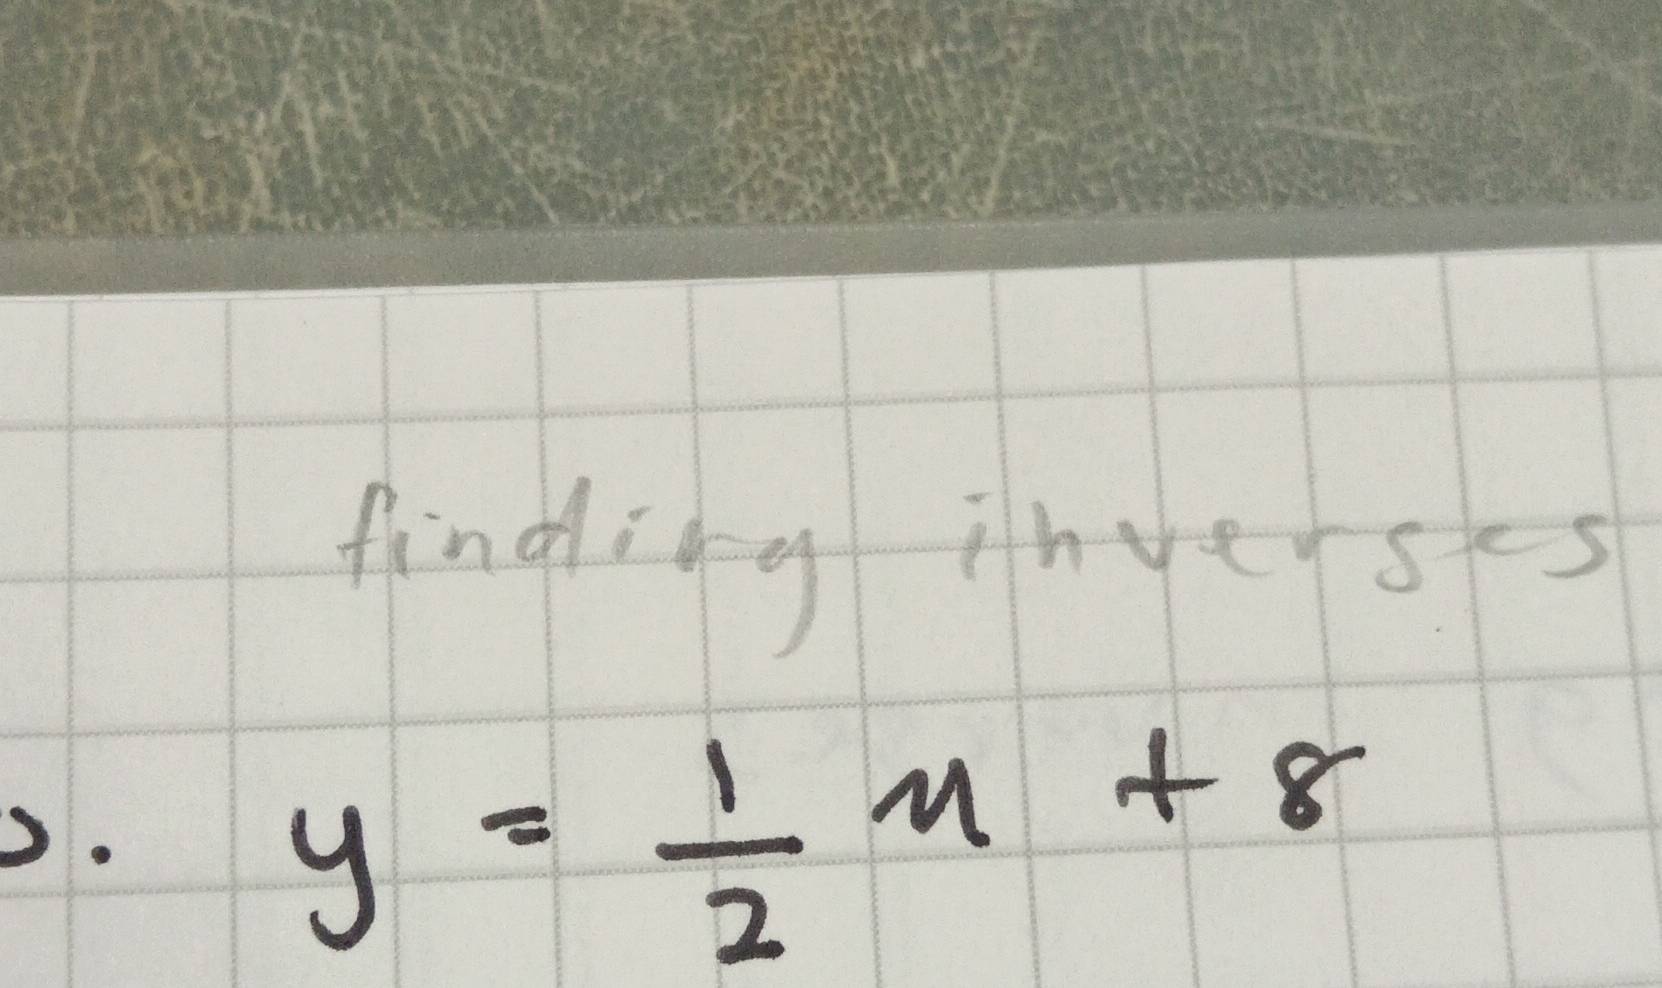 finding inverses
y = 1/2 x + 8